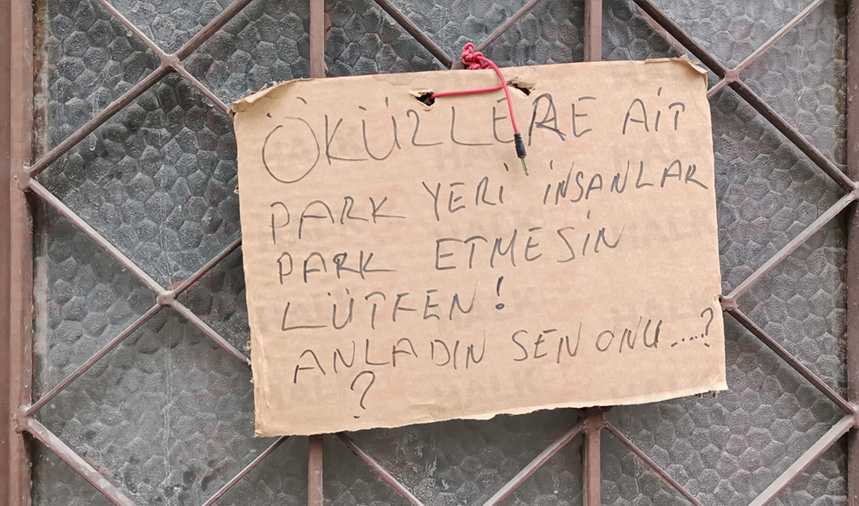 ÖKÜZLERE AİT
PARK YERİ İNSANLAR
PARK ETMESİN
LÜTFEN!
ANLADIN SEN ONU....?
?